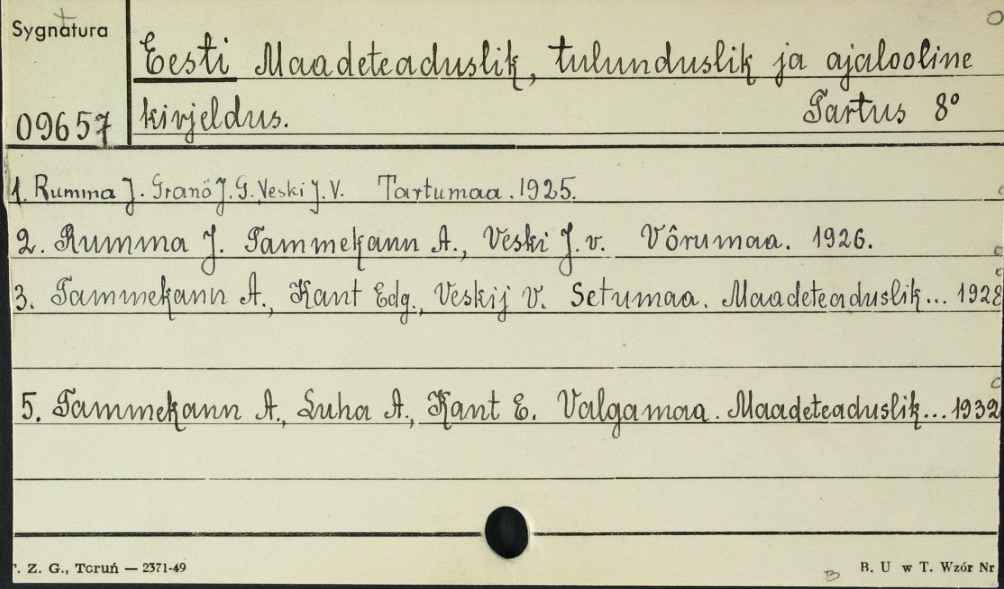 Sygnatura
Eesti Maadeteaduslik, tulunduslik ja ajalooline
09657 kirjeldus. Tartus 8°
1. Rumma J. Granö J. G. Veski J. V. Tartumaa. 1925.
2. Rumma J. Tammekann A., Veski J. v. Võrumaa. 1926.
3. Tammekann A., Kant Edg., Veskij V. Setumaa. Maadeteaduslik... 1928
5. Tammekann A., Luha A., Kant E. Valgamaa. Maadeteaduslik... 1932
. Z. G., Toruń — 2371-49
B. U w T. Wzór Nr